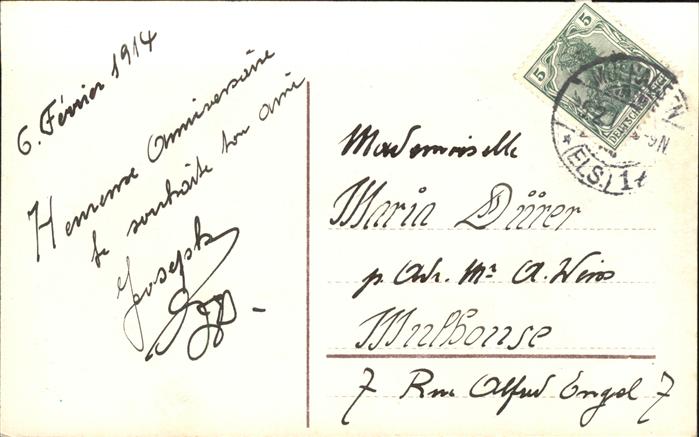 6. Février 1914
Heureuse Anniversaire
te souhaite ton ami
Joseph
Mademoiselle
Maria Dürer
p. Adr. Mr A. Weiss
Mulhouse
7 Rue Alfred Engel 7
5
5
DEUTSCHES
MÜLHAUSEN
(ELS.) 1